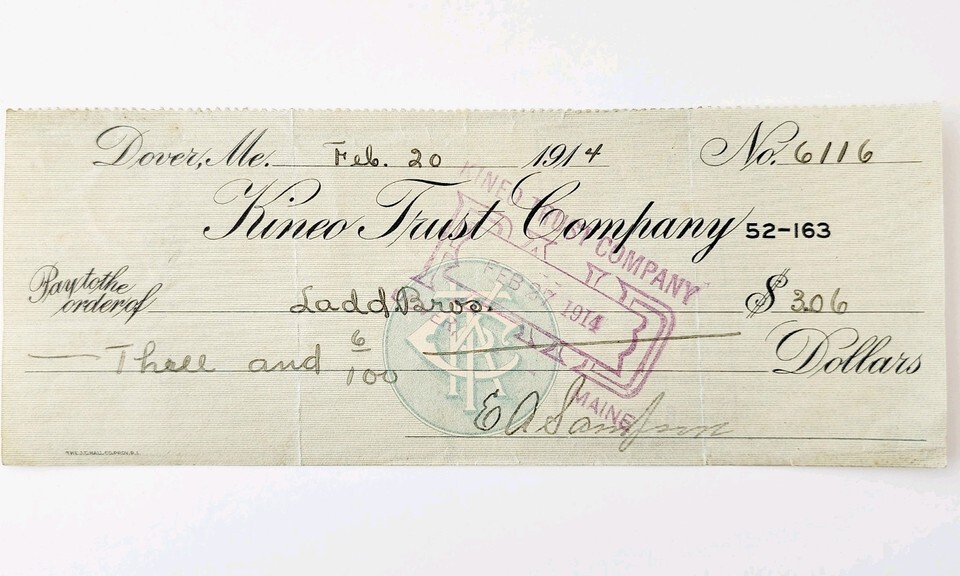 Dover, Me. Feb. 20 1914 No. 6116
Kineo Trust Company 52-163
Pay to the order of Ladd Bros. $ 3.06
Three and 6/100 Dollars
E A Sampson
KINEO TRUST COMPANY
PAID
FEB 27 1914
DOVER, MAINE
KTC